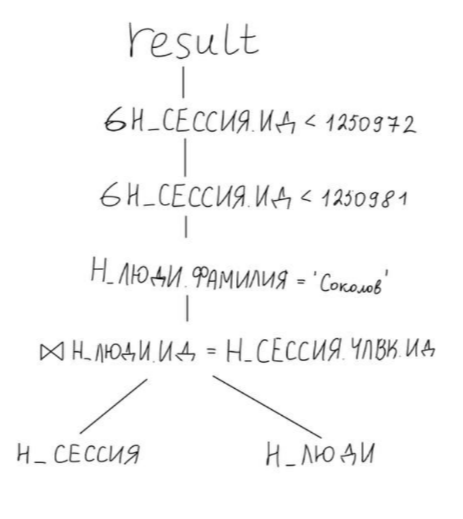 result
σ Н_СЕССИЯ.ИД < 1250972
σ Н_СЕССИЯ.ИД < 1250981
Н_ЛЮДИ.ФАМИЛИЯ = 'Соколов'
⋈ Н_ЛЮДИ.ИД = Н_СЕССИЯ.ЧЛВК.ИД
Н_СЕССИЯ Н_ЛЮДИ